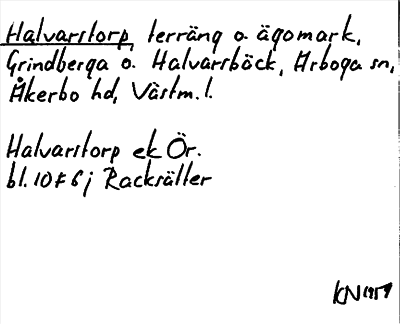 Halvarstorp, terräng o. ägomark,
Grindberga o. Halvarsbäck, Arboga sn,
Åkerbo hd, Västm. l.
Halvarstorp ek Ör.
bl. 10F6j Racksätter
KN 1959